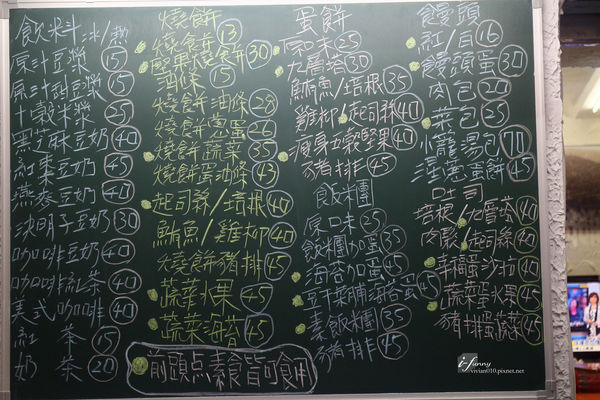 飲料 冰/熱
原汁豆漿 15
原汁甜豆漿 15
十穀米漿 25
黑芝麻豆奶 40
紅棗豆奶 45
燕麥豆奶 40
決明子豆奶 30
咖啡豆奶 40
咖啡紅茶 40
美式咖啡 40
紅茶 15
奶茶 20
燒餅
燒餅 13
堅果燒餅 30
油條 15
燒餅油條 28
燒餅蔥蛋 26
燒餅蔬菜 35
燒餅蛋油條 43
起司條/培根 40
鮪魚/雞柳 40
燒餅豬排 45
蔬菜水果 45
蔬菜海苔 45
前頭点素食皆可食用
蛋餅
原味 25
九層塔 30
鮪魚/培根 35
雞柳/起司條 40
瘦身五穀堅果 40
豬排 45
飯糰
原口味 35
飯糰加蛋 35
海苔加蛋 45
芋干菜脯海苔蛋 45
素飯糰 35
豬排 45
饅頭
紅/白 16
饅頭蛋 30
肉包 20
菜包 25
小籠湯包 70
蛋餅 45
吐司
培根/九層塔 40
肉鬆/起司條 40
幸福蛋沙拉 40
蔬菜蛋水果 45
豬排蛋蔬菜 45
i-funny
vivian010.pixnet.net